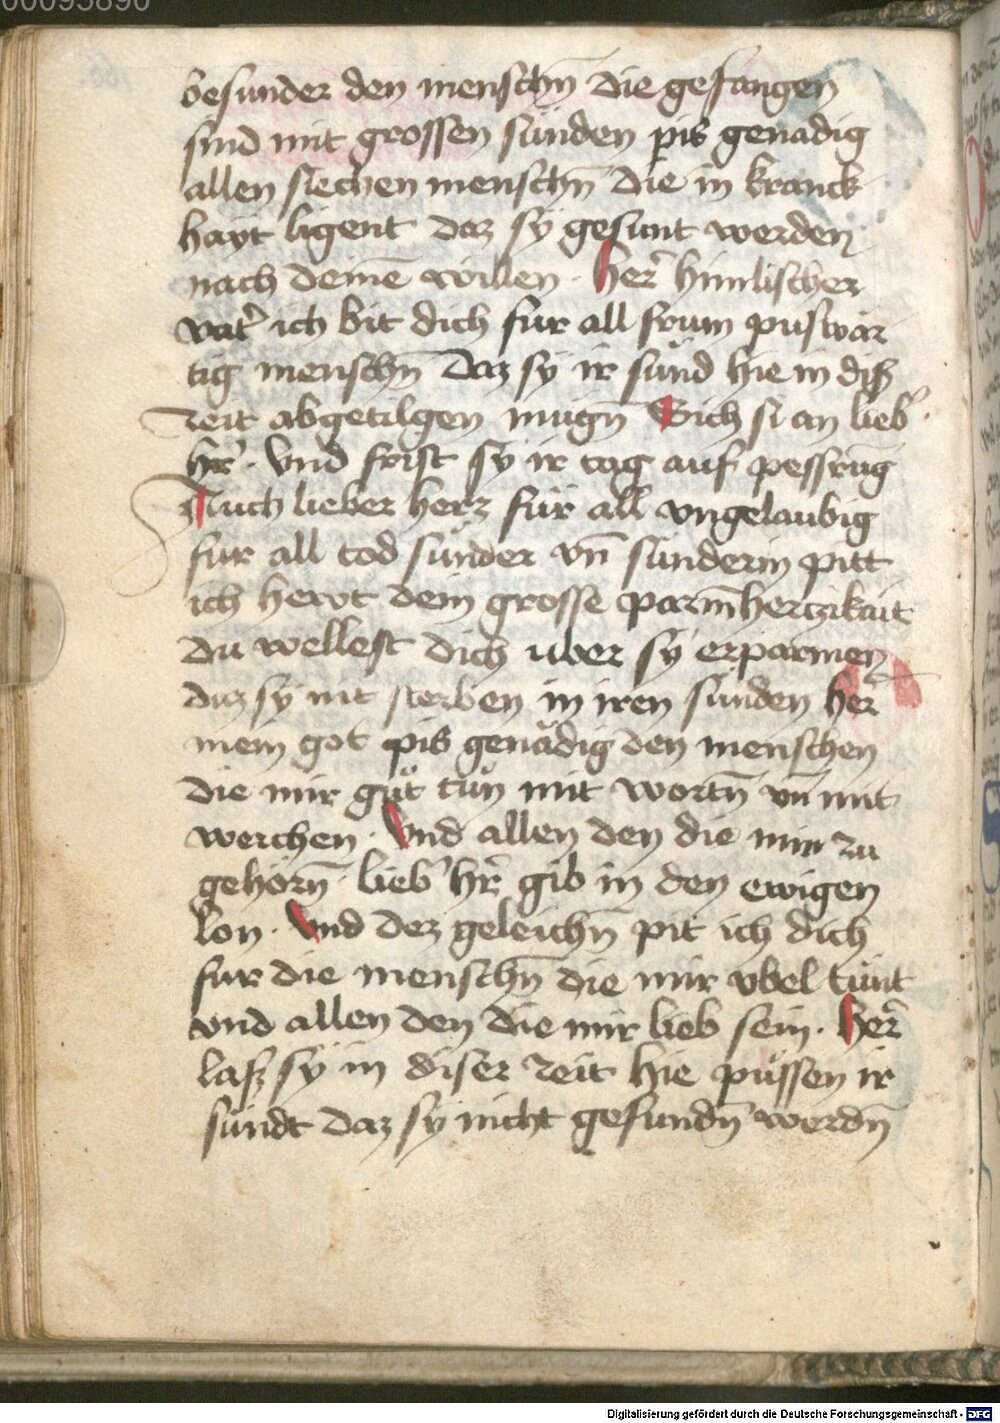 00095890
besunder den menschn̄ die gefangen
sind mit grossen sünden pis genadig
allen siechen menschn̄ die in kranck
hayt ligent daz sÿ gesunt werden
nach deinē willen · her᷑ himlischer
vat᷑ ich bit dich für all frum puswar
tig menschn̄ daz sÿ ir sünd hie in diß
zeit abgetilgen mugn̄ Sich si an lieb᷑ ·
hr᷑ · Vnd frist sÿ ir tag auf pessrūg
Auch lieber herz für all vngelaubig
für all tod sünder vn̄ sünderin pitt
ich hewt dein grosse parm̄hertzikait
du wellest dich uber sÿ erparmen
daz sÿ nit sterben in iren sünden her᷑
mein got pis genädig den menschen
die mir gůt tůn mit wortn̄ vn̄ mit
werchen · Vnd allen den die mir zu
gehörn̄ · lieb᷑ hr᷑ gib in den ewigen
lon · Vnd dez geleichn̄ pit ich dich
für die menschn̄ die mir vbel tünt
vnd allen den die mir lieb sein · her᷑
laß sÿ in diser zeit hie püssen ir
sündt daz sÿ nicht gefundn̄ werdn̄
Digitalisierung gefördert durch die Deutsche Forschungsgemeinschaft - DFG